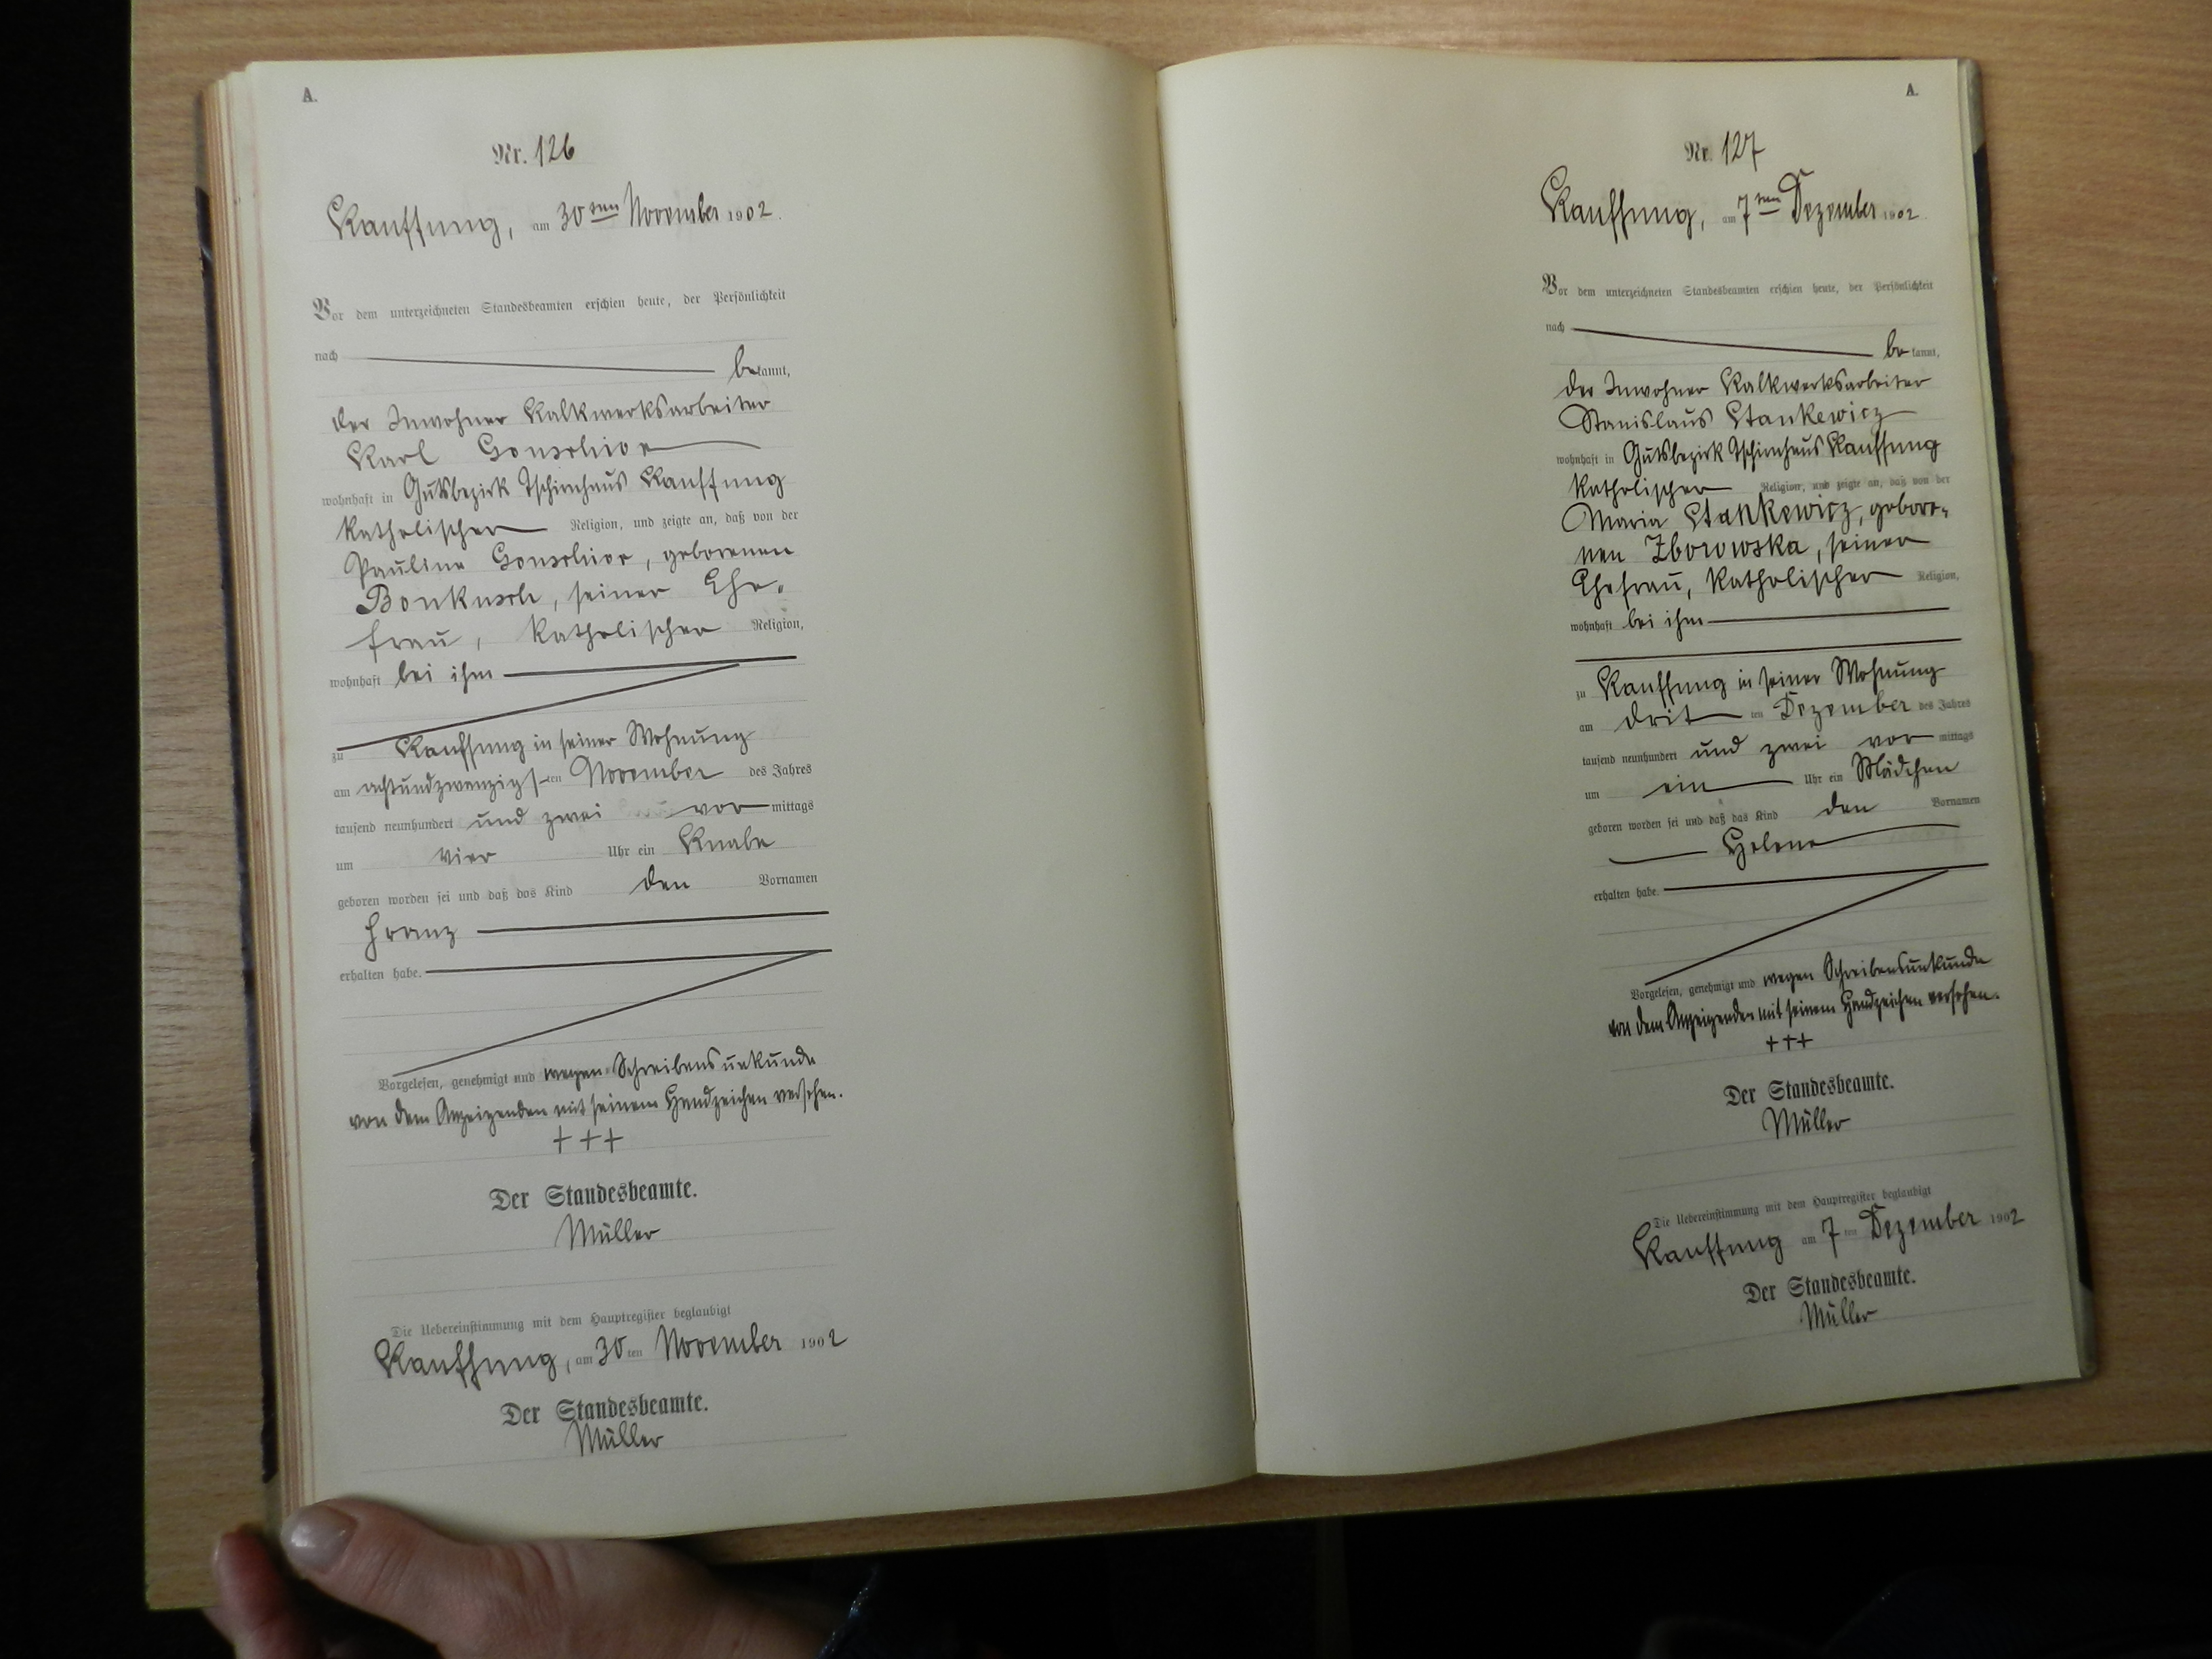 A.
Nr. 126
Kauffung, am 30ten November 1902.
Vor dem unterzeichneten Standesbeamten erschien heute, der Persönlichkeit
nach bekannt,
der Inwohner Kalkwerksarbeiter
Karl Gonschior
wohnhaft in Gutsbezirk Tschirnhaus Kauffung
katholischer Religion, und zeigte an, daß von der
Pauline Gonschior, geborenen
seiner Ehe-
frau, katholischer Religion,
wohnhaft bei ihm
zu Kauffung in seiner Wohnung
am achtundzwanzigsten November des Jahres
tausend neunhundert und zwei vormittags
um vier Uhr ein Knabe
geboren worden sei und daß das Kind den Vornamen
Franz
erhalten habe.
Vorgelesen, genehmigt und wegen Schreibensunkunde
von dem Anzeigenden mit seinem Handzeichen versehen.
+++
Der Standesbeamte.
Müller
Die Uebereinstimmung mit dem Hauptregister beglaubigt
Kauffung, am 30ten November 1902
Der Standesbeamte.
Müller
A.
Nr. 127
Kauffung, am 7ten Dezember 1902.
Vor dem unterzeichneten Standesbeamten erschien heute, der Persönlichkeit
nach bekannt,
der Inwohner Kalkwerksarbeiter
Stanislaus Stankewicz
wohnhaft in Gutsbezirk Tschirnhaus Kauffung
katholischer Religion, und zeigte an, daß von der
Maria Stankewicz, gebore-
nen Zborowska, seiner
Ehefrau, katholischer Religion,
wohnhaft bei ihm
zu Kauffung in seiner Wohnung
am dritten Dezember des Jahres
tausend neunhundert und zwei vormittags
um ein Uhr ein Mädchen
geboren worden sei und daß das Kind den Vornamen
Helene
erhalten habe.
Vorgelesen, genehmigt und wegen Schreibensunkunde
von dem Anzeigenden mit seinem Handzeichen versehen.
+++
Der Standesbeamte.
Müller
Die Uebereinstimmung mit dem Hauptregister beglaubigt
Kauffung am 7ten Dezember 1902
Der Standesbeamte.
Müller